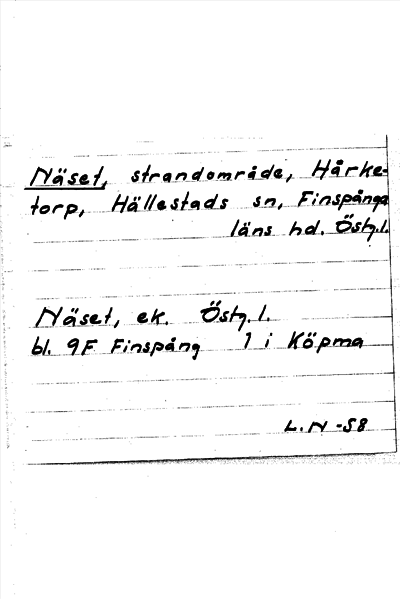 Näset, strandområde, Hårke-
torp, Hällestads sn, Finspånga
läns hd. Östg.l.
Näset, ek. Östg.l.
bl. 9F Finspång 1 i Köpma
L.N -58